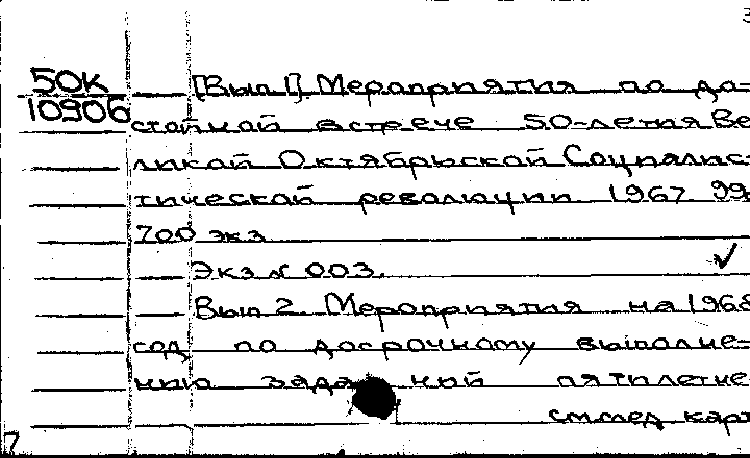 50К [Вып 1]. Мероприятия по до-
10906 стойной встрече 50-летия Ве
ликой Октябрьской Социалис-
тической революции 1967 99
700 экз
Экз № 003.
Вып 2. Мероприятия на 1968
год по досрочному выполне-
нию заданий пятилетне
см.след карт